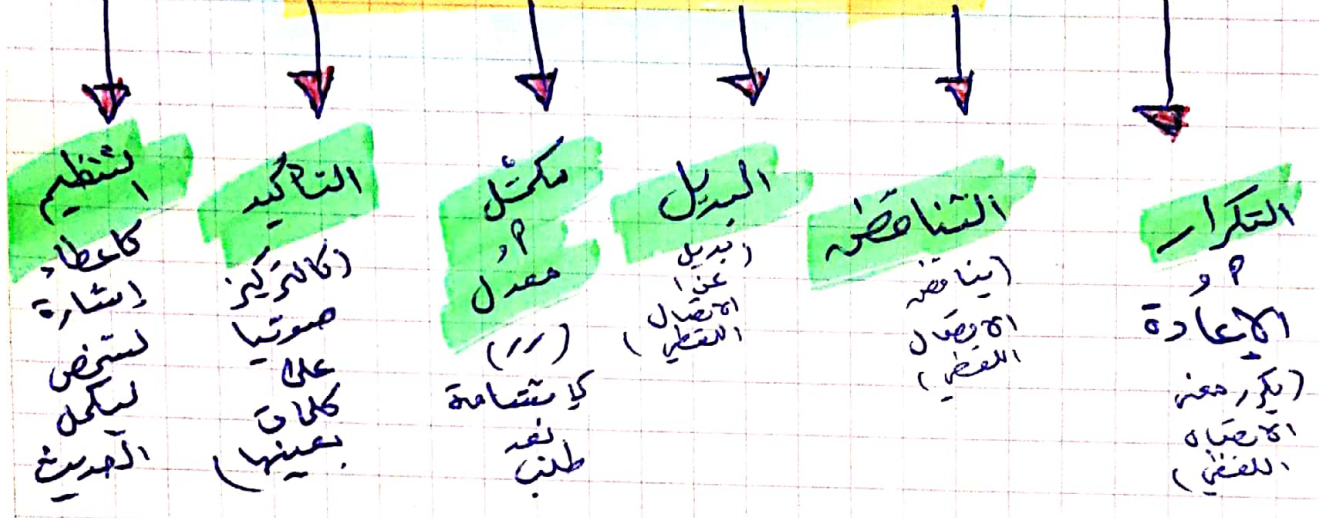 التكرار
أو
الإعادة
(يكرر معنى
الاتصال
اللفظي)
التناقض
(يناقض
الاتصال
اللفظي)
البديل
(بديل
عن
الاتصال
اللفظي)
مكمّل
أو
معدل
(رر)
كإبتسامة
بعد
طلب
التأكيد
(كالتركيز
صوتيا
على
كلمات
بعينها)
التنظيم
كاعطاء
إشارة
لشخص
ليكمل
الحديث